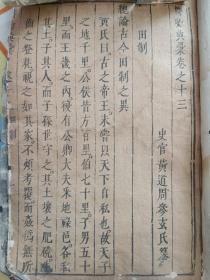 博物典彙卷之十三
史官黃道周參玄氏纂
田制
總論古今田制之異
黃氏曰古之帝王未嘗以天下自私也故天子
之地千里公侯皆方百里伯七十里子男五十
里而王畿之內復有公卿大夫采地祿邑各私
其土子其人而子孫世守之其土壤之肥磽
齒之登耗視之如其家不煩考覈而姦僞無所